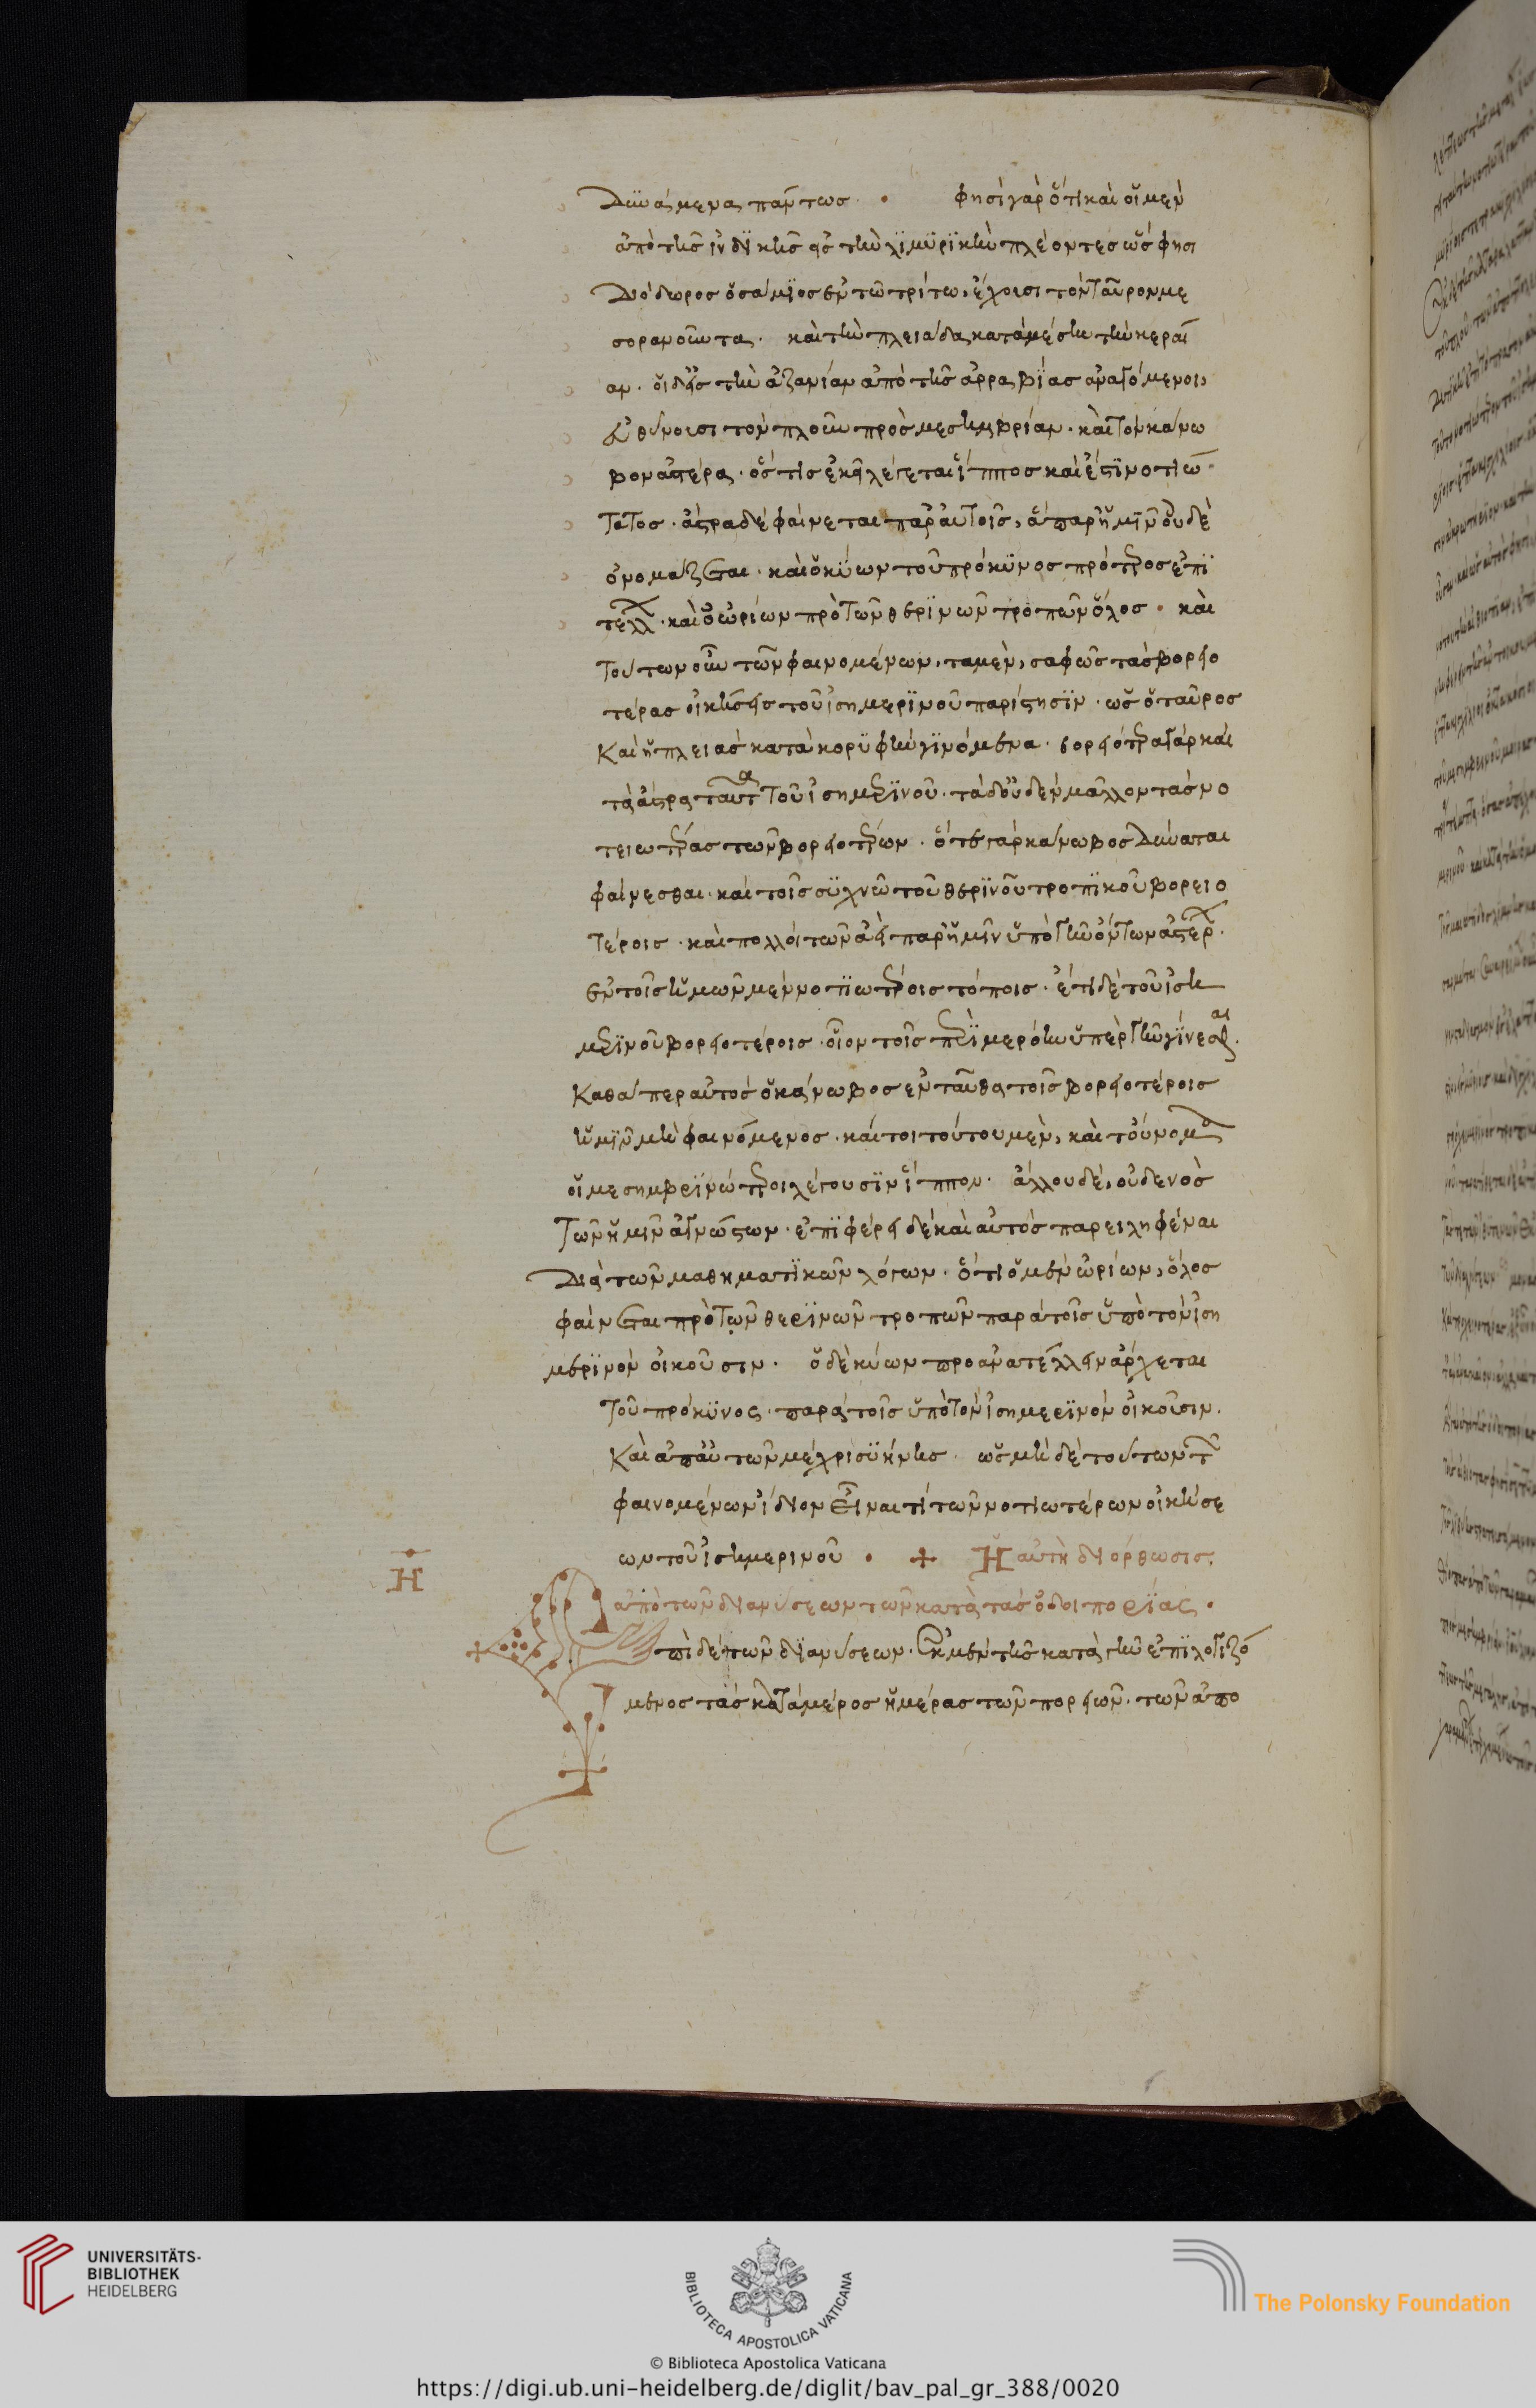 δυνάμενα πάντως · φησὶ γὰρ ὅτι καὶ οἱ μὲν
ἀπὸ τῆς ἰνδικῆς εἰς τὴν λιμυρικὴν πλέοντες ὥς φησι
διόδωρος ὁ σάμιος ἐν τῶ τρίτω, ἔχουσι τὸν ταῦρον με
σορανοῦντα. καὶ τὴν πλειάδα κατὰ μέσην τὴν κεραί
αν. οἱ δ' εἰς τὴν ἀζανίαν ἀπὸ τῆς ἀρραβίας ἀναγόμενοι,
εὐθύνουσι τὸν πλοῦν πρὸς μεσημβρίαν. καὶ τὸν κάνω
βον ἀστέρα. ὅς τις ἐκεῖ λέγεται ἵππος καὶ ἔστιν νοτιώ
τατος. ἄστρα δὲ φαίνεται παρ' αὐτοῖς, ἃ παρ' ἡμῖν οὐδὲ
ὀνομάζεται. καὶ ὁ κύων τοῦ πρόκυνος πρότερος ἐπι
τέλλ. καὶ ὁ ὠρίων πρὸ τῶν θερινῶν τροπῶν ὅλος · καὶ
τούτων οὖν τῶν φαινομένων, τὰ μὲν, σαφῶς τὰς βορειο
τέρας οἰκήσεις τοῦ ἰσημερινοῦ παρίστησιν. ὡς ὁ ταῦρος
καὶ ἡ πλειὰς κατὰ κορυφὴν γινόμενα. βορειότερα γάρ καὶ
τὰ ἄστρα ταῦτα τοῦ ἰσημερινοῦ. τὰ δ' οὐδὲν μᾶλλον τὰς νο
τειωτέρας τῶν βορειοτέρων. ὅτε γὰρ κάνωβος δύναται
φαίνεσθαι. καὶ τοῖς συχνῶ τοῦ θερινοῦ τροπικοῦ βορειο
τέροις. καὶ πολλοὶ τῶν ἀεὶ παρ' ἡμῖν ὑπὸ γῆν ὄντων ἀστέρ.
ἐν τοῖς ἡμῶν μὲν νοτιωτέροις τόποις. ἔτι δὲ τοῦ ἰση
μερινοῦ βορειοτέροις. οἷον τοῖς περὶ μερόην ὑπὲρ γῆν γίνεσθαι.
καθάπερ αὐτὸς ὁ κάνωβος ἐνταῦθα τοῖς βορειοτέροις
ἡμῖν μὴ φαινόμενος. καίτοι τούτου μὲν, καὶ τοὔνομα
οἱ μεσημβρινώτεροι λέγουσιν ἵππον. ἄλλου δὲ, οὐδενὸς
τῶν ἡμῖν ἀγνώστων. ἐπιφέρει δὲ καὶ αὐτὸς παρειληφέναι
διὰ τῶν μαθηματικῶν λόγων. ὅτι ὁ μὲν ὠρίων, ὅλος
φαίνεται πρὸ τῶν θερινῶν τροπῶν παρὰ τοῖς ὑπὸ τὸν ἰση
μερινὸν οἰκοῦσιν. ὁ δὲ κύων προανατέλλειν ἄρχεται
τοῦ πρόκυνος. παρὰ τοῖς ὑπὸ τὸν ἰσημερινὸν οἰκοῦσιν.
καὶ ἀπ' αὐτῶν μέχρι συήνης. ὡς μὴ δὲ τούτων τῶν
φαινομένων ἴδιον εἶναι τί τῶν νοτιωτέρων οἰκήσε
ων τοῦ ἰσημερινοῦ · + Ἡ αὐτὴ διόρθωσις.
Η
ἀπὸ τῶν διανύσεων τῶν κατὰ τὰς ὁδοιπορίας.
Ἐπὶ δὲ τῶν διανύσεων. ἐκ μὲν τῆς κατὰ γῆν ἐπιλογιζό
μενος τὰς κατὰ μέρος ἡμέρας τῶν πορειῶν. τῶν ἀπὸ
UNIVERSITÄTS-
BIBLIOTHEK
HEIDELBERG
BIBLIOTECA APOSTOLICA VATICANA
The Polonsky Foundation
© Biblioteca Apostolica Vaticana
https://digi.ub.uni-heidelberg.de/diglit/bav_pal_gr_388/0020